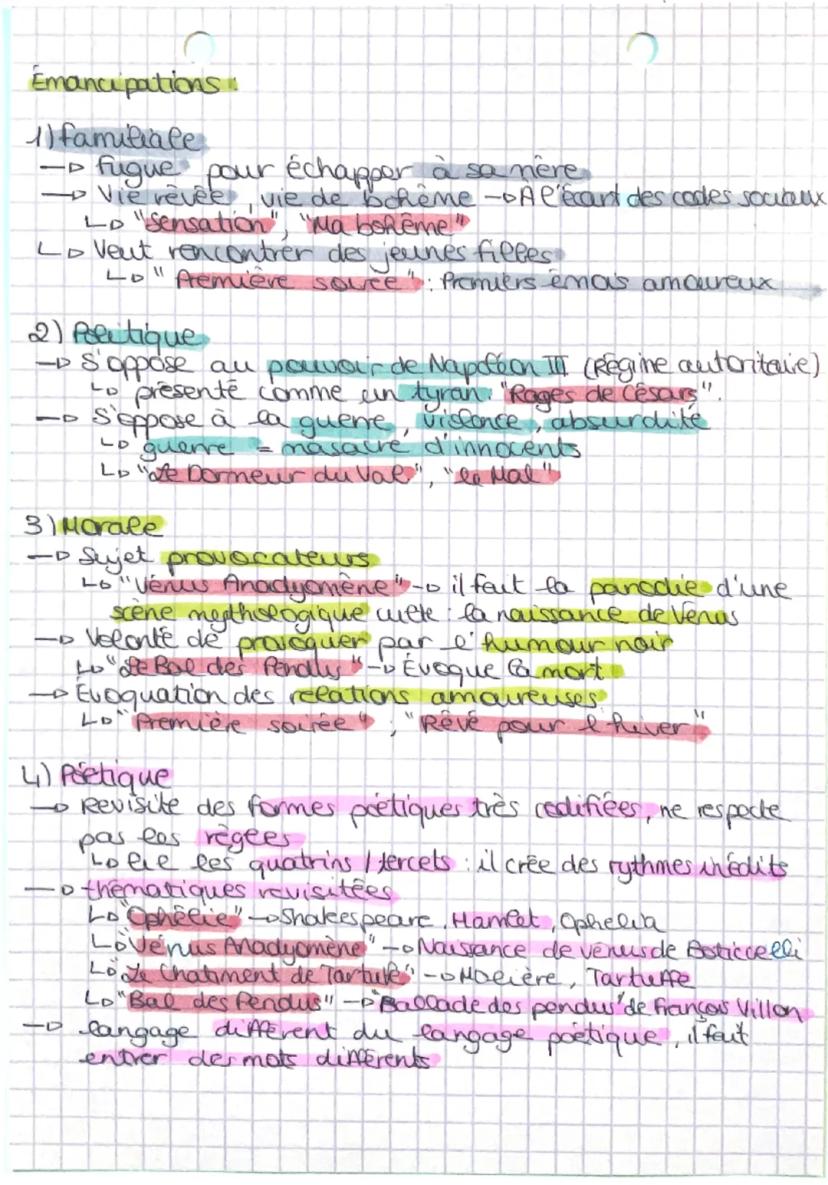 Émancipations :
1) familiale
→ fugue pour échapper à sa mère
→ Vie rêvée, vie de bohème → A l'écart des codes sociaux
↳ "Sensation", "Ma bohème"
↳ Veut rencontrer des jeunes filles
↳ "Première soirée" : Premiers émois amoureux
2) Politique
→ S'oppose au pouvoir de Napoléon III (Régime autoritaire)
↳ présenté comme un tyran "Rages de Césars".
→ S'oppose à la guerre, violence, absurdité
↳ guerre = masacre d'innocents
↳ "Le Dormeur du Val", "le Mal"
3) Morale
→ Sujet provocateurs
↳ "Vénus Anadyomène" → il fait la parodie d'une
scène mythologique culte : la naissance de Vénus
→ Volonté de provoquer par l'humour noir
↳ "Le Bal des Pendus" → Évoque la mort
→ Évoquation des relations amoureuses
↳ "Première soirée" ; "Rêvé pour l'hiver"
4) Poétique
→ Revisite des formes poétiques très codifiées, ne respecte
pas les règles
↳ lie les quatrins / tercets : il crée des rythmes inédits
→ thématiques revisitées
↳ "Ophélie" → Shakespeare, Hamlet, Ophelia
↳ "Vénus Anadyomène" → Naissance de vénus de Boticcelli
↳ "Le Chatiment de Tartufe" → Molière, Tartuffe
↳ "Bal des Pendus" → "Ballade des pendus" de François Villon
→ langage différent du langage poétique, il fait
entrer des mots différents